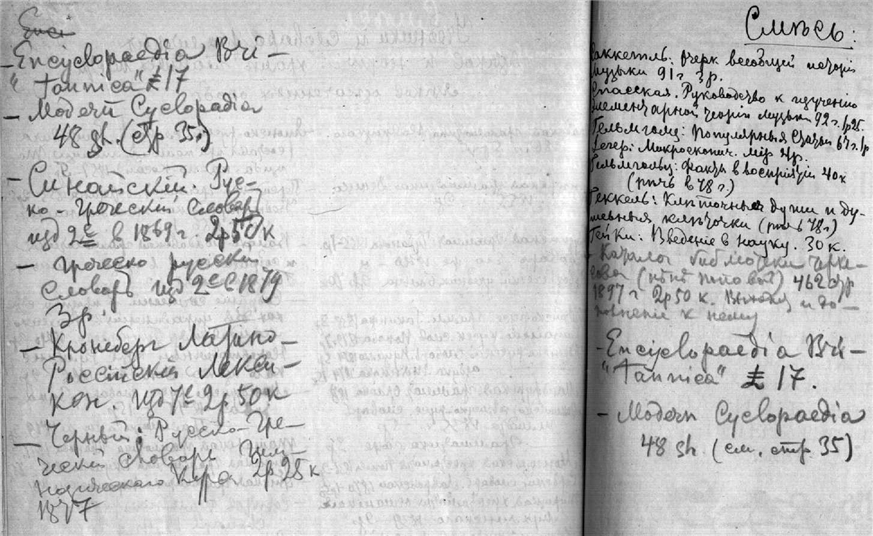 Enci
– Encyclopaedia Bri–
"tannica" £ 17
– Modern Cyclopaedia
48 sh. (стр. 35.)
– Синайский. Рус–
ко–греческий словарь
изд 2е в 1869 г. 2р 50 к
– Греческо русский
словарь изд 2е 1879
3р.
– Кронеберг Латино–
Российский Лекси–
кон изд 7е 2р 50 к
– Черный. Русско–гре–
ческий словарь
2р 25 к
1877
Смѣсь:
очерк всеобщей исторіи
музыки 91 г 3р.
Спасская. Руководство к изученію
элементарной теоріи музыки 92 г. 1р 25.
Гельмгольц: Популярныя 1р
Микроскопич. мір
Гельмгольц: Факты в воспріятіи 40 к
Геккель: Клѣточныя души и ду–
шевныя клѣточки
Гейки: Введеніе в науку. 30 к.
Каталог библіотеки Черке–
сова 4620 р
1897 г 2р 50 к. и до–
полненіе к нему
– Encyclopaedia Bri–
"tannica" £ 17.
– Modern Cyclopaedia
48 sh. (см. стр. 35)